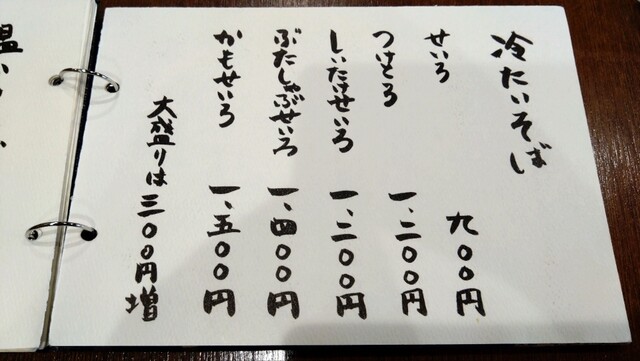 冷たいそば
せいろ 九〇〇円
つけとろ 一、二〇〇円
しいたけせいろ 一、二〇〇円
ぶたしゃぶせいろ 一、四〇〇円
かもせいろ 一、五〇〇円
大盛りは三〇〇円増